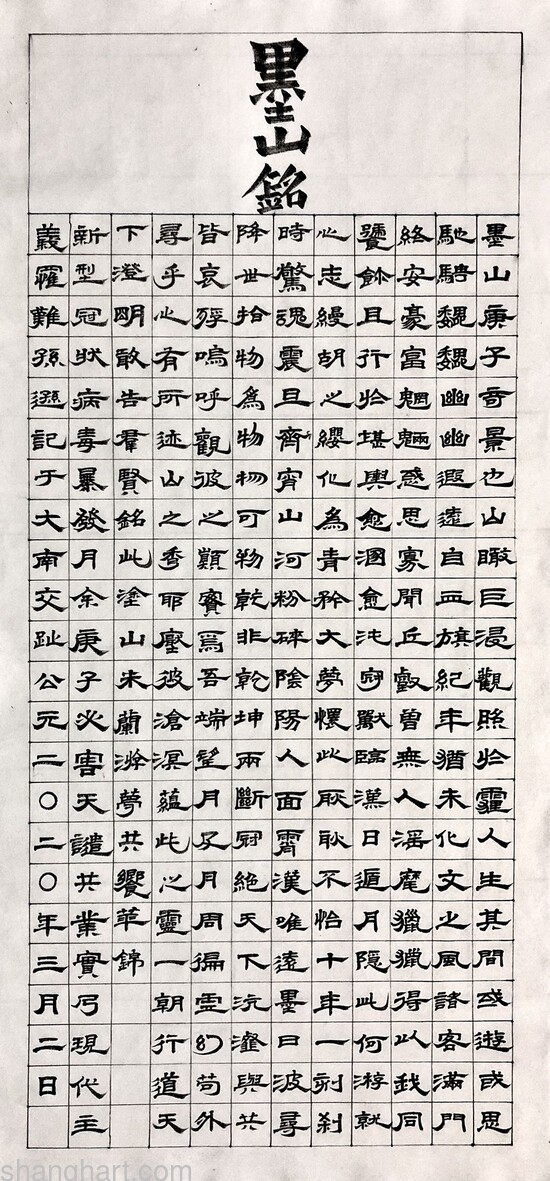 墨山銘
墨山庚子奇景也山瞰巨浸觀照於霾人生其間或遊或思
馳騁魏魏幽幽遐遠自血旗紀年猶未化文之風諸客滿門
絡安豪富魍魎惑思寡聞丘叡曾無人滛麾獵獵得以我同
饕餘且行於堪輿愈溷愈沌守獸臨漢日遁月隱此何游就
心志縵胡之纓化為青矜大夢懷此耿耿不怡十年一剎
時驚魂震旦齊宵山河粉碎陰陽人面霄漢唯遠墨日波尋
降世拾物為物物可勒乾非乾坤兩斷冠絕天下沆瀣與共
皆哀殍嗚呼觀彼之顥賽焉吾端望月反月周徧霊幻苟外
尋乎心有所迹山之秀耶塵彼滄溟蘊此心靈一朝行道天
下澄明敢告羣賢銘此塗山朱蘭游夢共饗華錦
新型冠狀病毒暴發月余庚子災害天譴共業實乃現代主
義羅難孫遜記于大南交趾公元二〇二〇年三月二日
shanghart.com